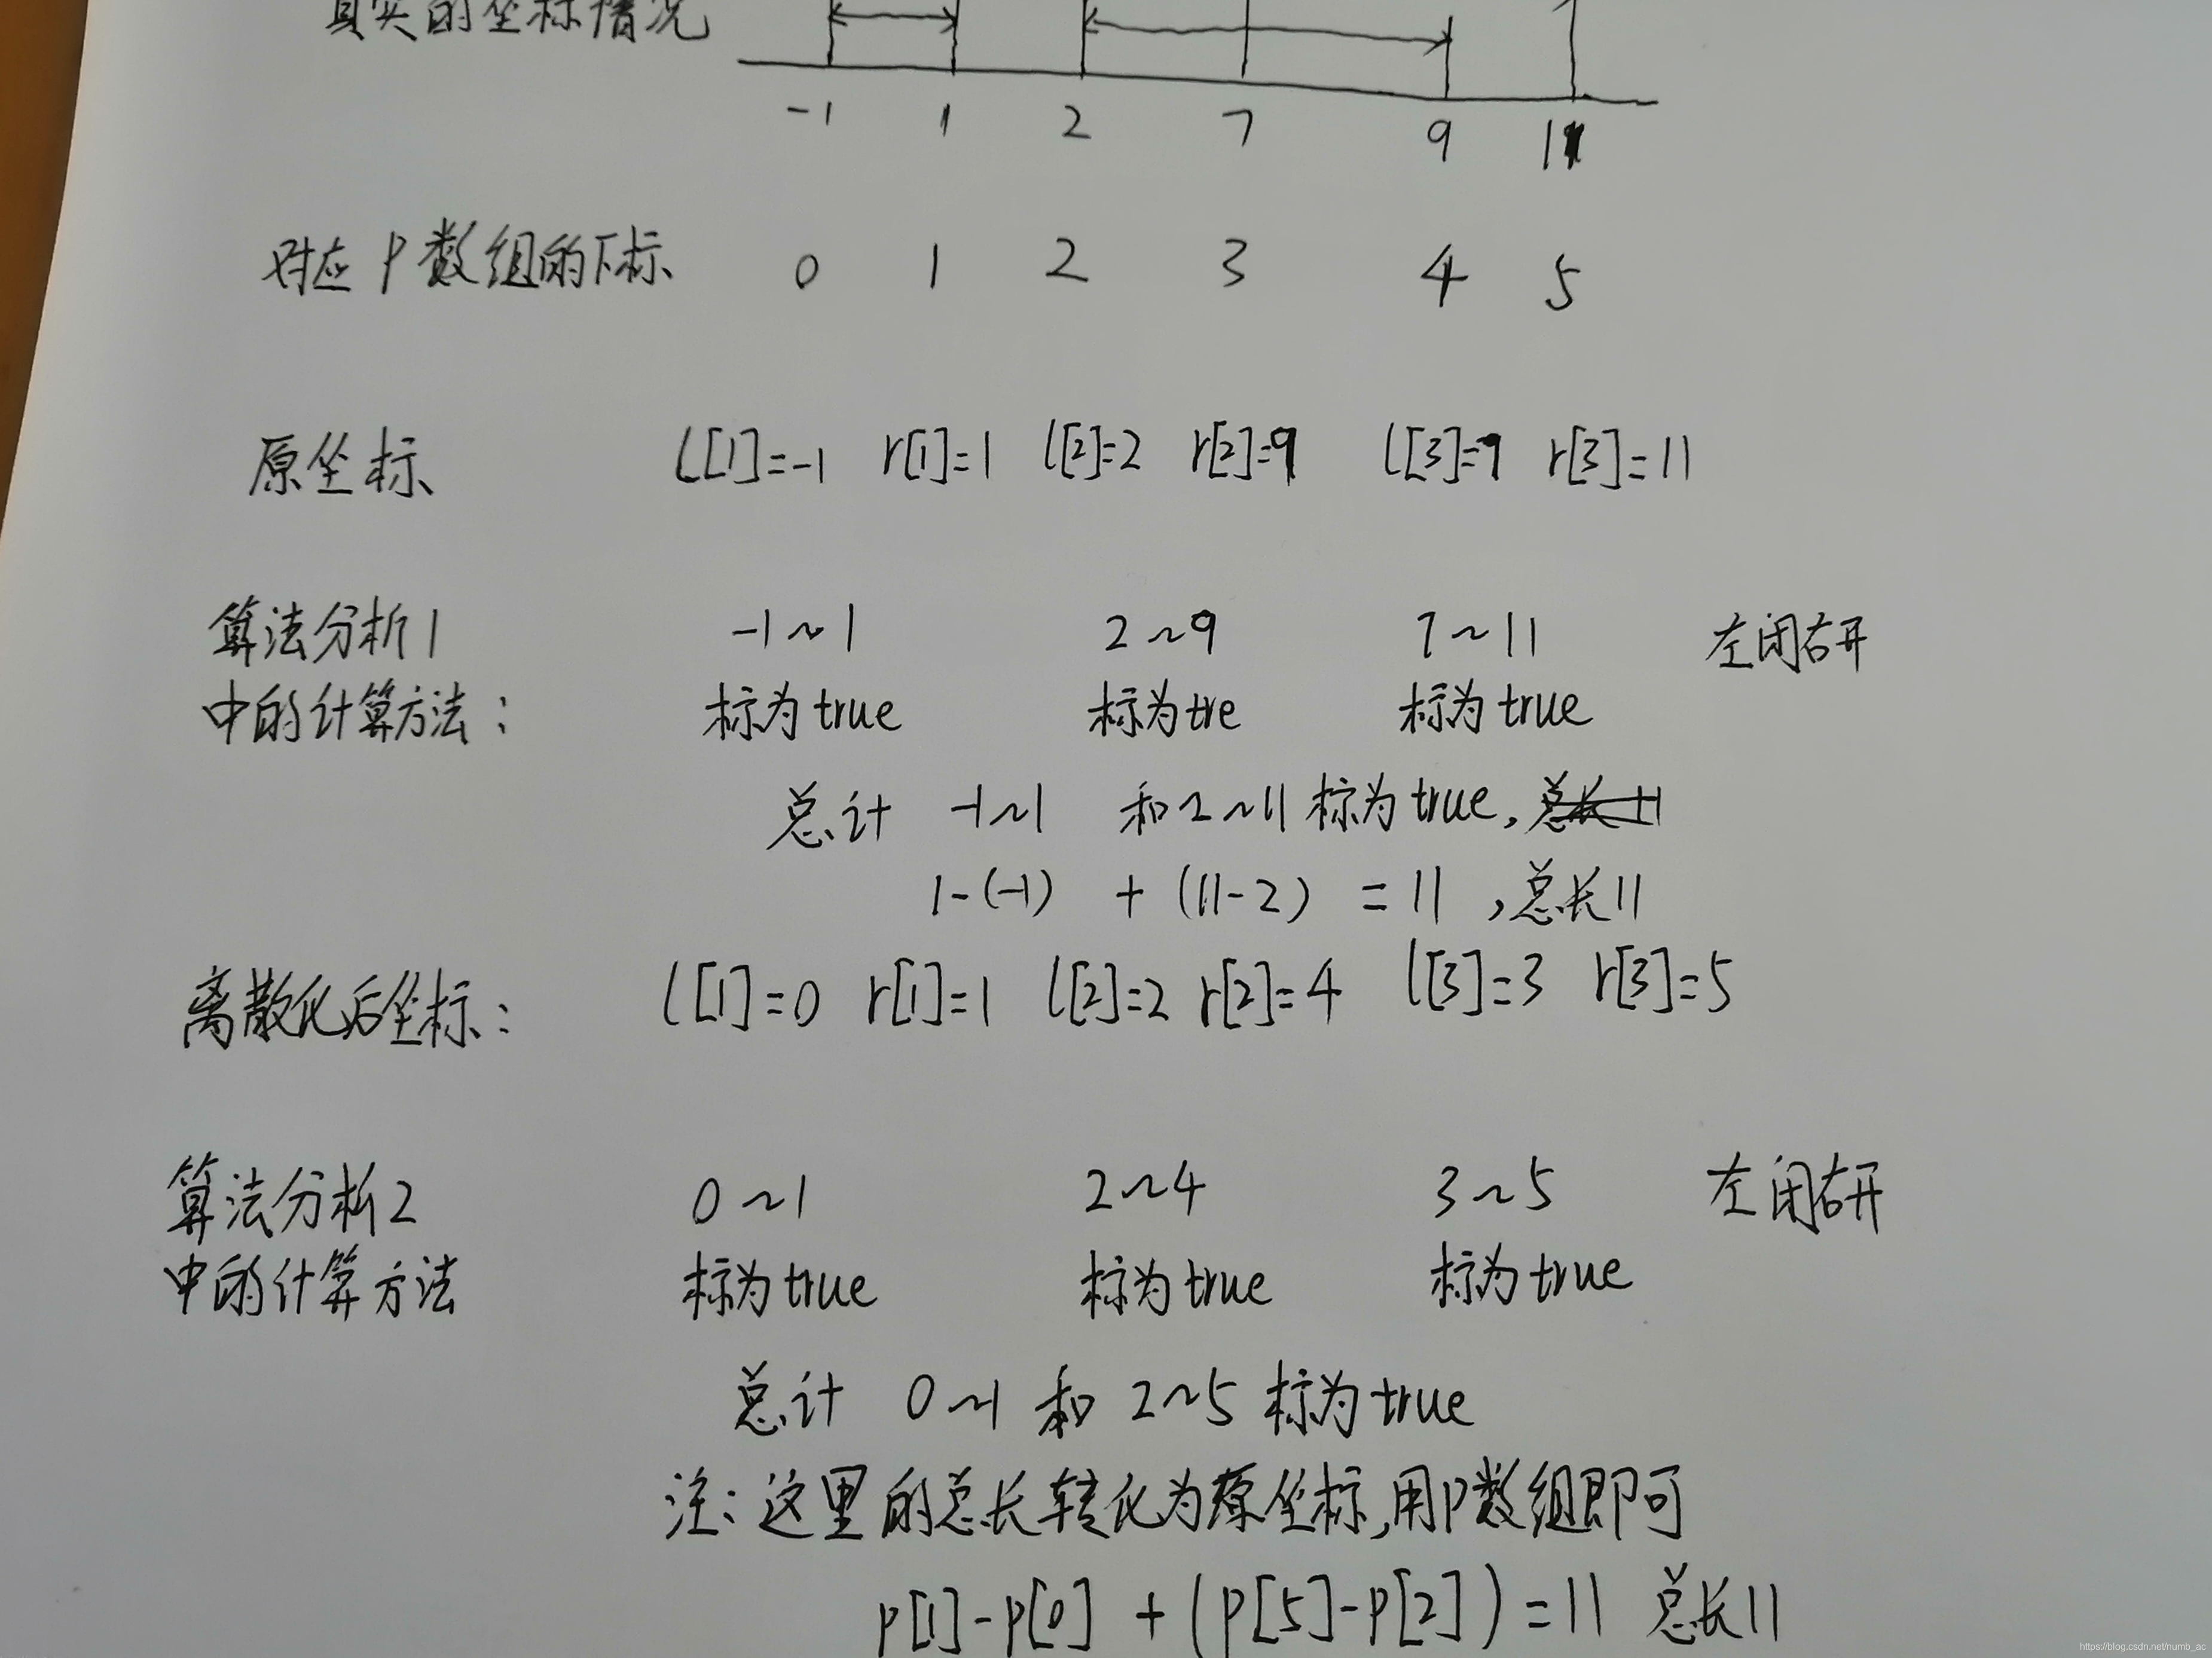 真实的坐标情况
-1 1 2 7 9 11
对应P数组的下标 0 1 2 3 4 5
原坐标 l[1]=-1 r[1]=1 l[2]=2 r[2]=9 l[3]=7 r[3]=11
算法分析1 -1~1 2~9 7~11 左闭右开
中的计算方法: 标为true 标为tre 标为true
总计 -1~1 和2~11标为true,
1-(-1) + (11-2) = 11 ,总长11
离散化后坐标: l[1]=0 r[1]=1 l[2]=2 r[2]=4 l[3]=3 r[3]=5
算法分析2 0~1 2~4 3~5 左闭右开
中的计算方法 标为true 标为true 标为true
总计 0~1 和 2~5 标为true
注:这里的总长转化为原坐标,用P数组即可
p[1]-p[0] + (p[5]-p[2])=11 总长11
https://blog.csdn.net/numb_ac